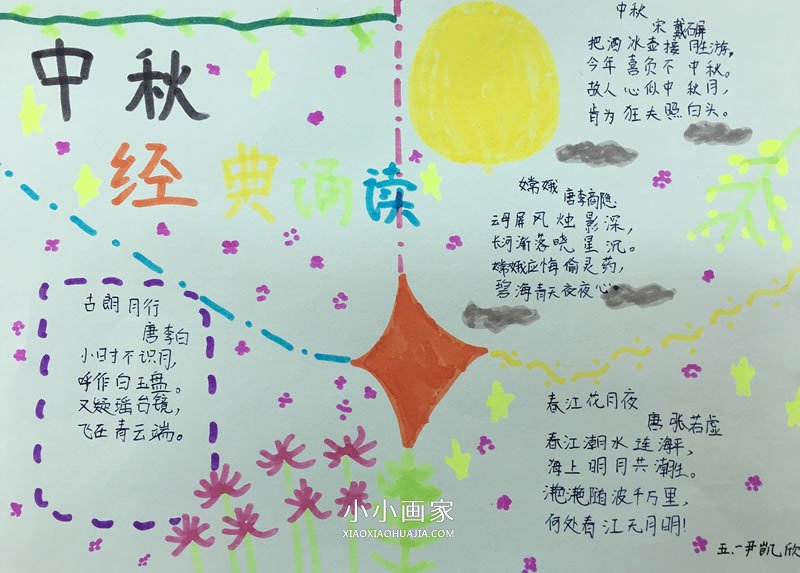 中秋
经典诵读
中秋
宋 戴石屏
把酒冰壶接胜游，
今年喜负不中秋。
故人心似中秋月，
肯为狂夫照白头。
嫦娥
唐李商隐
云母屏风烛影深，
长河渐落晓星沉。
嫦娥应悔偷灵药，
碧海青天夜夜心。
古朗月行
唐李白
小时不识月，
呼作白玉盘。
又疑瑶台镜，
飞在青云端。
春江花月夜
唐 张若虚
春江潮水连海平，
海上明月共潮生。
滟滟随波千万里，
何处春江无月明！
五.一尹凯欣
小小画家
XIAOXIAOHUAJIA.COM